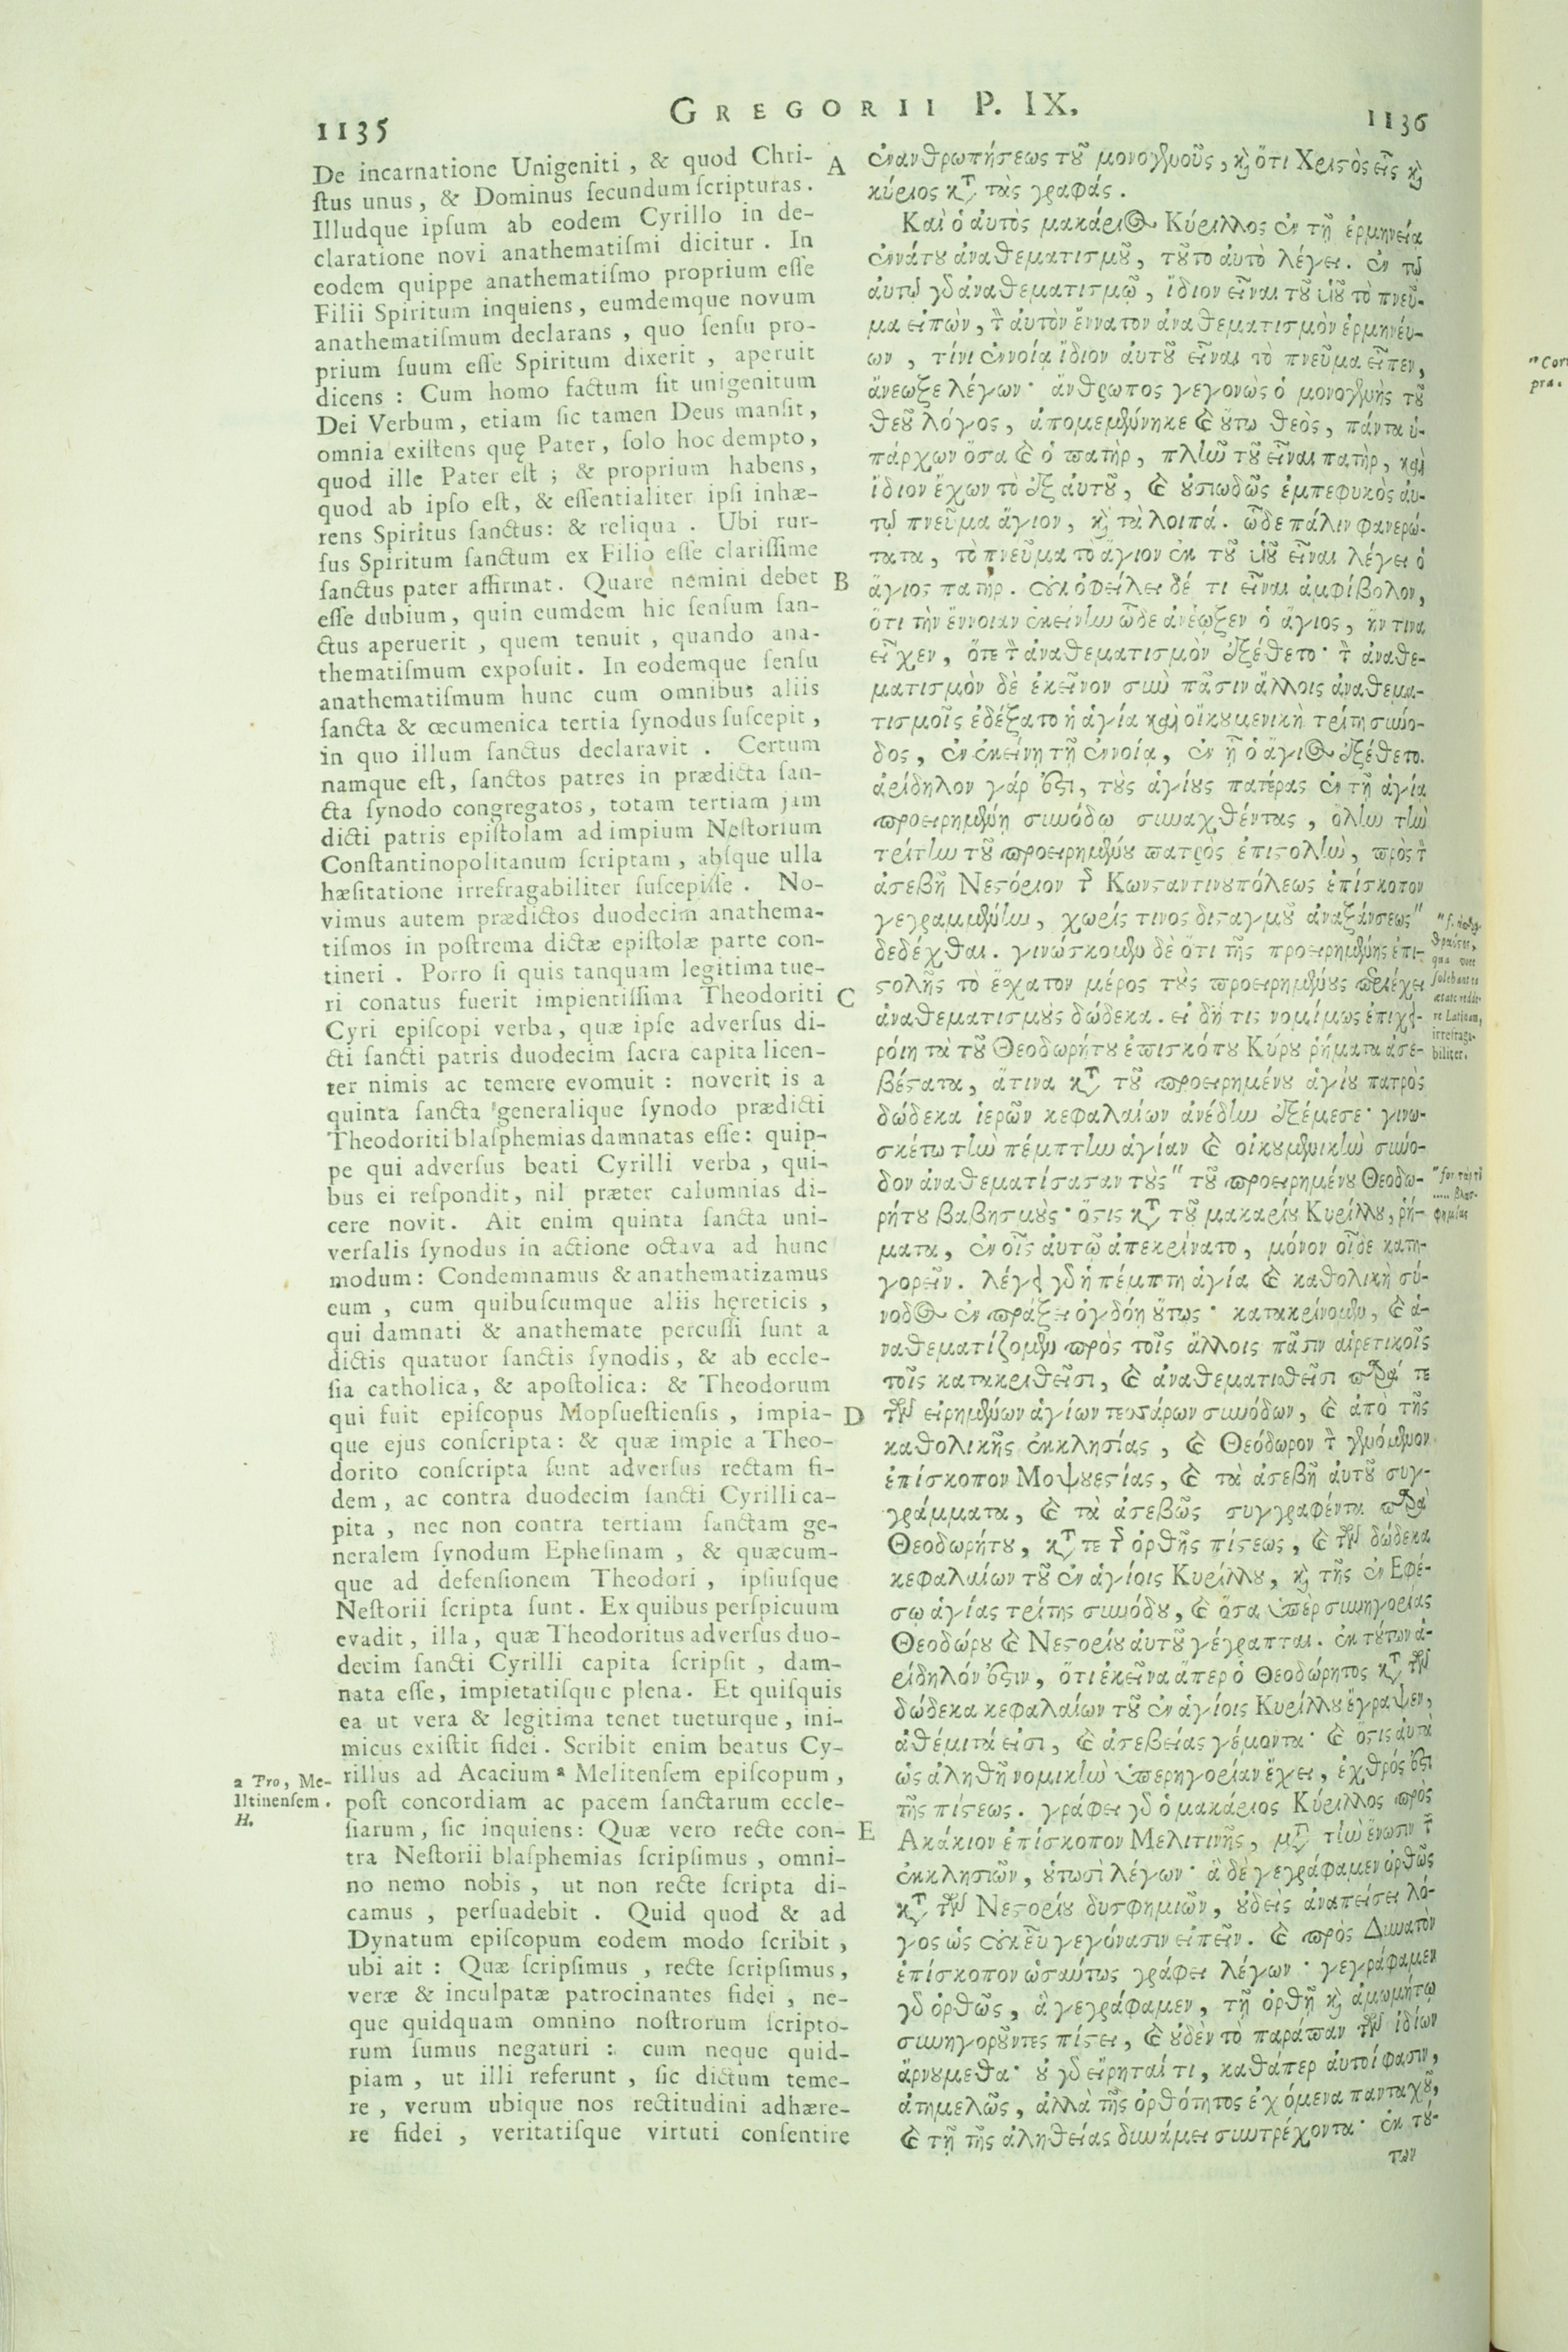 1135
GREGORII P. IX.
1136
De incarnatione Unigeniti, & quod Chri-
ſtus unus, & Dominus ſecundum ſcripturas.
Illudque ipſum ab eodem Cyrillo in de-
claratione novi anathematiſmi dicitur. In
eodem quippe anathematiſmo proprium eſſe
Filii Spiritum inquiens, eumdemque novum
anathematiſmum declarans, quo ſenſu pro-
prium ſuum eſſe Spiritum dixerit, aperuit
dicens: Cum homo factum ſit unigenitum
Dei Verbum, etiam ſic tamen Deus manſit,
omnia exiſtens quę Pater, ſolo hoc dempto,
quod ille Pater eſt; & proprium habens,
quod ab ipſo eſt, & eſſentialiter ipſi inhæ-
rens Spiritus ſanctus: & reliqua. Ubi rur-
ſus Spiritum ſanctum ex Filio eſſe clariſſime
ſanctus pater affirmat. Quare nemini debet
eſſe dubium, quin eumdem hic ſenſum ſan-
ctus aperuerit, quem tenuit, quando ana-
thematiſmum expoſuit. In eodemque ſenſu
anathematiſmum hunc cum omnibus aliis
ſancta & œcumenica tertia ſynodus ſuſcepit,
in quo illum ſanctus declaravit. Certum
namque eſt, ſanctos patres in prædicta ſan-
cta ſynodo congregatos, totam tertiam jam
dicti patris epiſtolam ad impium Neſtorium
Conſtantinopolitanum ſcriptam, abſque ulla
hæſitatione irrefragabiliter ſuſcepiſſe. No-
vimus autem prædictos duodecim anathema-
tiſmos in poſtrema dictæ epiſtolæ parte con-
tineri. Porro ſi quis tanquam legitima tue-
ri conatus fuerit impientiſſima Theodoriti
Cyri epiſcopi verba, quæ ipſe adverſus di-
cti ſancti patris duodecim ſacra capita licen-
ter nimis ac temere evomuit: noverit is a
quinta ſancta generalique ſynodo prædicti
Theodoriti blaſphemias damnatas eſſe: quip-
pe qui adverſus beati Cyrilli verba, qui-
bus ei reſpondit, nil præter calumnias di-
cere novit. Ait enim quinta ſancta uni-
verſalis ſynodus in actione octava ad hunc
modum: Condemnamus & anathematizamus
eum, cum quibuſcumque aliis hęreticis,
qui damnati & anathemate percuſſi ſunt a
dictis quatuor ſanctis ſynodis, & ab eccle-
ſia catholica, & apoſtolica: & Theodorum
qui fuit epiſcopus Mopſueſtienſis, impia-
que ejus conſcripta: & quæ impie a Theo-
dorito conſcripta ſunt adverſus rectam fi-
dem, ac contra duodecim ſancti Cyrilli ca-
pita, nec non contra tertiam ſanctam ge-
neralem ſynodum Epheſinam, & quæcum-
que ad defenſionem Theodori, ipſiuſque
Neſtorii ſcripta ſunt. Ex quibus perſpicuum
evadit, illa, quæ Theodoritus adverſus duo-
decim ſancti Cyrilli capita ſcripſit, dam-
nata eſſe, impietatiſque plena. Et quiſquis
ea ut vera & legitima tenet tueturque, ini-
micus exiſtit fidei. Scribit enim beatus Cy-
rillus ad Acacium a Melitenſem epiſcopum,
poſt concordiam ac pacem ſanctarum eccle-
ſiarum, ſic inquiens: Quæ vero recte con-
tra Neſtorii blaſphemias ſcripſimus, omni-
no nemo nobis, ut non recte ſcripta di-
camus, perſuadebit. Quid quod & ad
Dynatum epiſcopum eodem modo ſcribit,
ubi ait: Quæ ſcripſimus, recte ſcripſimus,
veræ & inculpatæ patrocinantes fidei, ne-
que quidquam omnino noſtrorum ſcripto-
rum ſumus negaturi: cum neque quid-
piam, ut illi referunt, ſic dictum teme-
re, verum ubique nos rectitudini adhære-
re fidei, veritatiſque virtuti conſentire
a Pro, Me-
litinenſem.
H.
A
B
C
D
E
ἐνανθρωπήσεως τοῦ μονογενοῦς, καὶ ὅτι Χριστὸς εἷς καὶ
κύριος κατὰ τὰς γραφάς.
Καὶ ὁ αὐτὸς μακάριος Κύριλλος ἐν τῇ ἑρμηνείᾳ
ἐννάτου ἀναθεματισμοῦ, τοῦτο αὐτὸ λέγει. ἐν τῷ
αὐτῷ γὰρ ἀναθεματισμῷ, ἴδιον εἶναι τοῦ υἱοῦ τὸ πνεῦ-
μα εἰπὼν, τὸν αὐτὸν ἔννατον ἀναθεματισμὸν ἑρμηνεύ-
ων, τίνι ἐννοίᾳ ἴδιον αὐτοῦ εἶναι τὸ πνεῦμα εἶπεν,
ἀνέωξε λέγων· ἄνθρωπος γεγονὼς ὁ μονογενὴς τοῦ
θεοῦ λόγος, ἀπομεμένηκε καὶ οὕτω θεὸς, πάντα ὑ-
πάρχων ὅσα καὶ ὁ πατὴρ, πλὴν τοῦ εἶναι πατὴρ, καὶ
ἴδιον ἔχων τὸ ἐξ αὐτοῦ, καὶ οὐσιωδῶς ἐμπεφυκὸς αὐ-
τῷ πνεῦμα ἅγιον, καὶ τὰ λοιπά. ὧδε πάλιν φανερώ-
τατα, τὸ πνεῦμα τὸ ἅγιον ἐκ τοῦ υἱοῦ εἶναι λέγει ὁ
ἅγιος πατήρ. οὐκ ὀφείλει δέ τι εἶναι ἀμφίβολον,
ὅτι τὴν ἔννοιαν ἐκείνην ὧδε ἀνέωξεν ὁ ἅγιος, ἥν τινα
εἶχεν, ὅτε τὸν ἀναθεματισμὸν ἐξέθετο· τὸν ἀναθε-
ματισμὸν δὲ ἐκεῖνον σὺν πᾶσιν ἄλλοις ἀναθεμα-
τισμοῖς ἐδέξατο ἡ ἁγία καὶ οἰκουμενικὴ τρίτη σύνο-
δος, ἐν ἐκείνῃ τῇ ἐννοίᾳ, ἐν ᾗ ὁ ἅγιος ἐξέθετο.
ἀρίδηλον γάρ ἐστι, τοὺς ἁγίους πατέρας ἐν τῇ ἁγίᾳ
προειρημένῃ συνόδῳ συναχθέντας, ὅλην τὴν
τρίτην τοῦ προειρημένου πατρὸς ἐπιστολὴν, πρὸς τὸν
ἀσεβῆ Νεστόριον τῆς Κωνσταντινουπόλεως ἐπίσκοπον
γεγραμμένην, χωρίς τινος δισταγμοῦ ἀναξάνσεως"
δεδέχθαι. γινώσκομεν δὲ ὅτι τῆς προειρημένης ἐπι-
στολῆς τὸ ἔσχατον μέρος τοὺς προειρημένους περιέχει
ἀναθεματισμοὺς δώδεκα. εἰ δή τις νομίμως ἐπιχει-
ροίη τὰ τοῦ Θεοδωρήτου ἐπισκόπου Κύρου ῥήματα ἀσε-
βέστατα, ἅτινα κατὰ τοῦ προειρημένου ἁγίου πατρὸς
δώδεκα ἱερῶν κεφαλαίων ἀνέδην ἐξέμεσε· γινω-
σκέτω τὴν πέμπτην ἁγίαν καὶ οἰκουμενικὴν σύνο-
δον ἀναθεματίσασαν τοὺς" τοῦ προειρημένου Θεοδω-
ρήτου βαβησμούς· ὅστις κατὰ τοῦ μακαρίου Κυρίλλου, ῥή-
ματα, ἐν οἷς αὐτῷ ἀπεκρίνατο, μόνον οἶδε κατη-
γορεῖν. λέγει γὰρ ἡ πέμπτη ἁγία καὶ καθολικὴ σύ-
νοδος ἐν πράξει ὀγδόῃ οὕτως· κατακρίνομεν, καὶ ἀ-
ναθεματίζομεν πρὸς τοῖς ἄλλοις πᾶσιν αἱρετικοῖς
τοῖς κατακριθεῖσι, καὶ ἀναθεματισθεῖσι παρά τε
τῶν εἰρημένων ἁγίων τεσσάρων συνόδων, καὶ ἀπὸ τῆς
καθολικῆς ἐκκλησίας, καὶ Θεόδωρον τὸν γενόμενον
ἐπίσκοπον Μοψουεστίας, καὶ τὰ ἀσεβῆ αὐτοῦ συγ-
γράμματα, καὶ τὰ ἀσεβῶς συγγραφέντα παρὰ
Θεοδωρήτου, κατά τε τῆς ὀρθῆς πίστεως, καὶ τῶν δώδεκα
κεφαλαίων τοῦ ἐν ἁγίοις Κυρίλλου, καὶ τῆς ἐν Ἐφέ-
σῳ ἁγίας τρίτης συνόδου, καὶ ὅσα ὑπὲρ συνηγορίας
Θεοδώρου καὶ Νεστορίου αὐτοῦ γέγραπται. ἐκ τούτων ἀ-
ρίδηλόν ἐστιν, ὅτι ἐκεῖνα ἅπερ ὁ Θεοδώρητος κατὰ τῶν
δώδεκα κεφαλαίων τοῦ ἐν ἁγίοις Κυρίλλου ἔγραψεν,
ἀθέμιτά εἰσι, καὶ ἀσεβείας γέμοντα· καὶ ὅστις αὐτὰ
ὡς ἀληθῆ νομικὴν ὑπερηγορίαν ἔχει, ἐχθρός ἐστι
τῆς πίστεως. γράφει γὰρ ὁ μακάριος Κύριλλος πρὸς
Ἀκάκιον ἐπίσκοπον Μελιτινῆς, μετὰ τὴν ἕνωσιν τῶν
ἐκκλησιῶν, οὑτωσὶ λέγων· ἃ δὲ γεγράφαμεν ὀρθῶς
κατὰ τῶν Νεστορίου δυσφημιῶν, οὐδεὶς ἀναπείσει λό-
γος ὡς οὐκ εὖ γεγόνασιν εἰπεῖν. καὶ πρὸς Δυνατὸν
ἐπίσκοπον ὡσαύτως γράφει λέγων· γεγράφαμεν
γὰρ ὀρθῶς, ἃ γεγράφαμεν, τῇ ὀρθῇ καὶ ἀμωμήτῳ
συνηγοροῦντες πίστει, καὶ οὐδὲν τὸ παράπαν τῶν ἰδίων
ἀρνούμεθα· οὐ γὰρ εἴρηταί τι, καθάπερ αὐτοί φασιν,
ἀτημελῶς, ἀλλὰ τῆς ὀρθότητος ἐχόμενα πανταχοῦ,
καὶ τῇ τῆς ἀληθείας δυνάμει συντρέχοντα· ἐκ τού-
των
qua voce
ſolebant ea
ætate redde-
re Latinum,
irrefraga-
biliter.